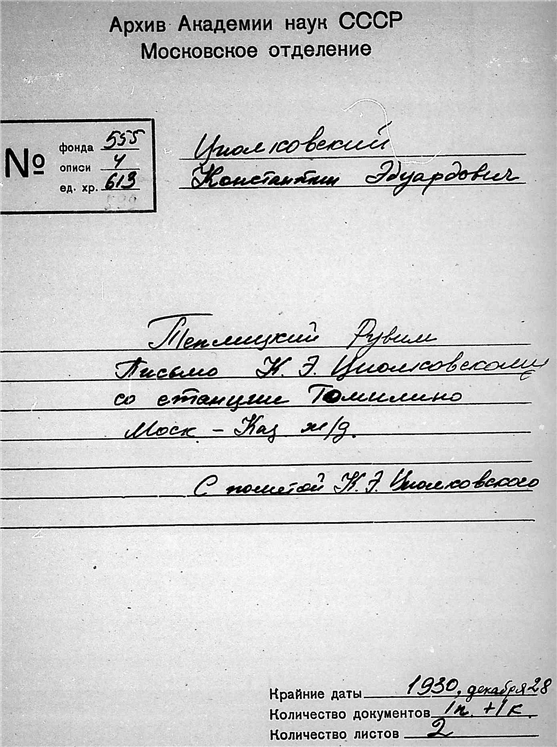 Архив Академии наук СССР
Московское отделение
№
фонда 555
описи 4
ед. хр. 613
Циолковский
Константин Эдуардович
Теплицкий Рувим
Письмо К. Э. Циолковскому
со станции Томилино
Моск - Каз ж/д.
С пометой К. Э. Циолковского
Крайние даты 1930, декабря 28
Количество документов 1п. + 1к.
Количество листов 2